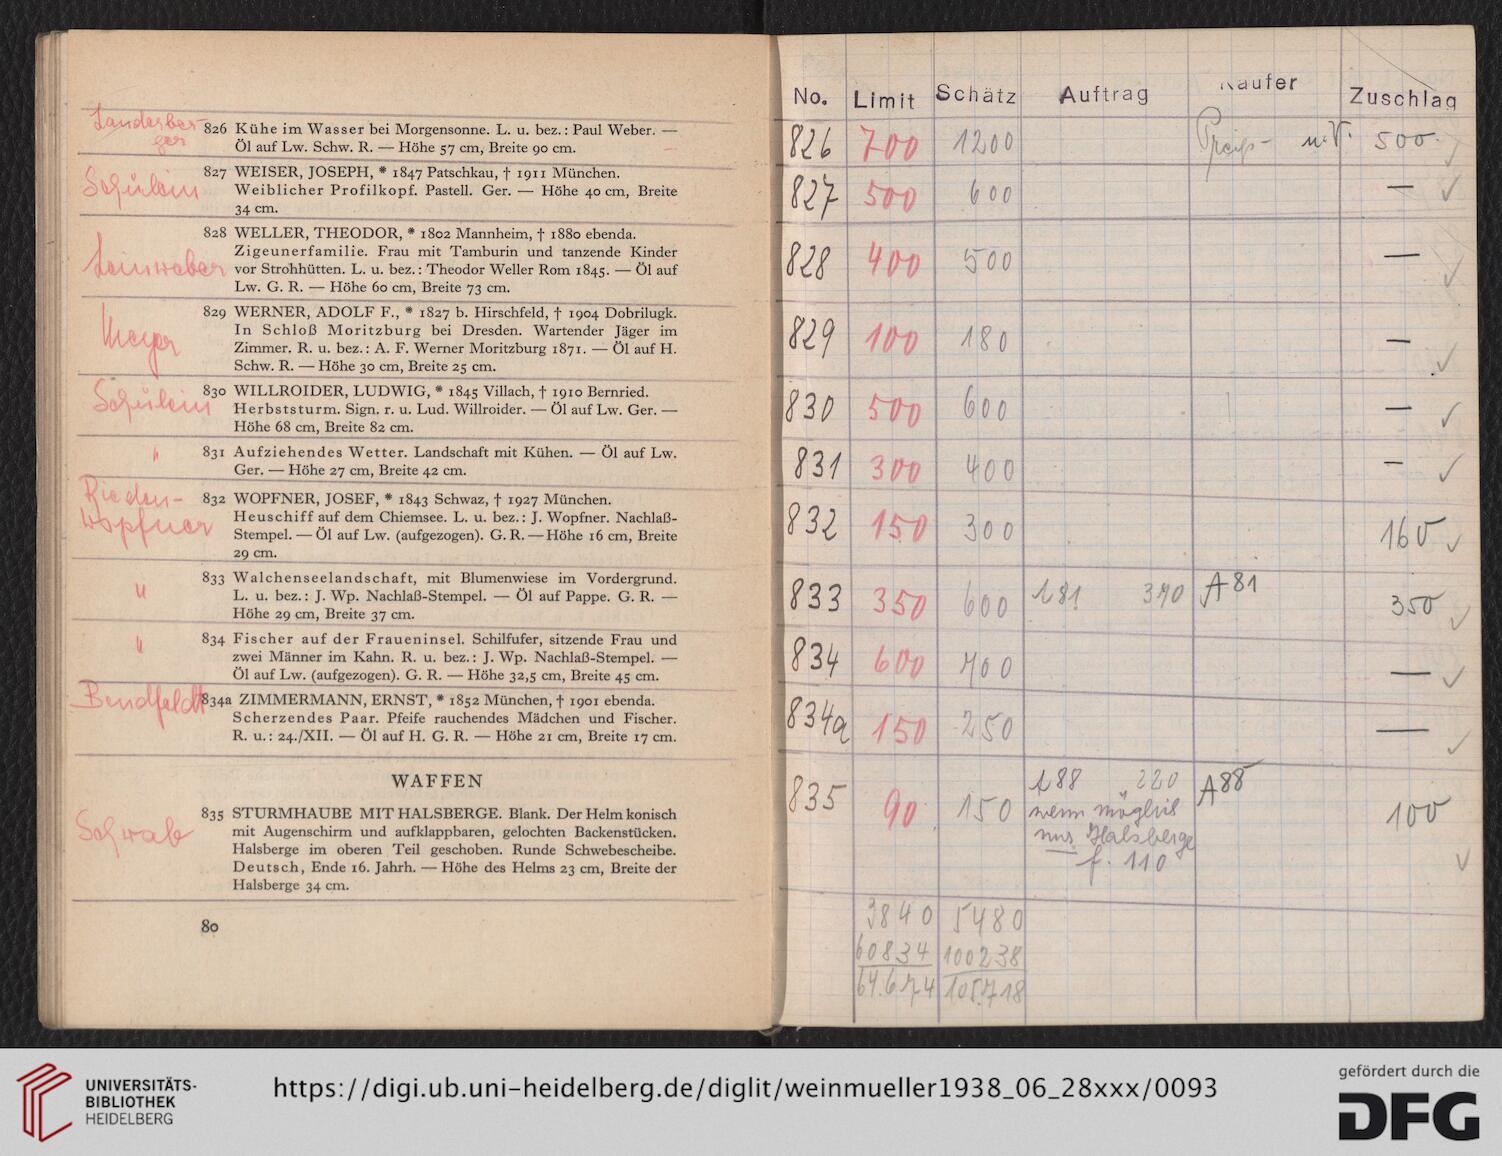 Landesber-
ger
826 Kühe im Wasser bei Morgensonne. L. u. bez.: Paul Weber. —
Öl auf Lw. Schw. R. — Höhe 57 cm, Breite 90 cm.
Schülein
827 WEISER, JOSEPH, * 1847 Patschkau, † 1911 München.
Weiblicher Profilkopf. Pastell. Ger. — Höhe 40 cm, Breite
34 cm.
828 WELLER, THEODOR, * 1802 Mannheim, † 1880 ebenda.
Zigeunerfamilie. Frau mit Tamburin und tanzende Kinder
Leinweber vor Strohhütten. L. u. bez.: Theodor Weller Rom 1845. — Öl auf
Lw. G. R. — Höhe 60 cm, Breite 73 cm.
829 WERNER, ADOLF F., * 1827 b. Hirschfeld, † 1904 Dobrilugk.
In Schloß Moritzburg bei Dresden. Wartender Jäger im
Meyer Zimmer. R. u. bez.: A. F. Werner Moritzburg 1871. — Öl auf H.
Schw. R. — Höhe 30 cm, Breite 25 cm.
830 WILLROIDER, LUDWIG, * 1845 Villach, † 1910 Bernried.
Schülein Herbststurm. Sign. r. u. Lud. Willroider. — Öl auf Lw. Ger. —
Höhe 68 cm, Breite 82 cm.
" 831 Aufziehendes Wetter. Landschaft mit Kühen. — Öl auf Lw.
Ger. — Höhe 27 cm, Breite 42 cm.
Rieden-
Wopfner
832 WOPFNER, JOSEF, * 1843 Schwaz, † 1927 München.
Heuschiff auf dem Chiemsee. L. u. bez.: J. Wopfner. Nachlaß-
Stempel. — Öl auf Lw. (aufgezogen). G. R. — Höhe 16 cm, Breite
29 cm.
833 Walchenseelandschaft, mit Blumenwiese im Vordergrund.
" L. u. bez.: J. Wp. Nachlaß-Stempel. — Öl auf Pappe. G. R. —
Höhe 29 cm, Breite 37 cm.
" 834 Fischer auf der Fraueninsel. Schilfufer, sitzende Frau und
zwei Männer im Kahn. R. u. bez.: J. Wp. Nachlaß-Stempel. —
Öl auf Lw. (aufgezogen). G. R. — Höhe 32,5 cm, Breite 45 cm.
Bendfeldt 834a ZIMMERMANN, ERNST, * 1852 München, † 1901 ebenda.
Scherzendes Paar. Pfeife rauchendes Mädchen und Fischer.
R. u.: 24./XII. — Öl auf H. G. R. — Höhe 21 cm, Breite 17 cm.
WAFFEN
835 STURMHAUBE MIT HALSBERGE. Blank. Der Helm konisch
Schwab mit Augenschirm und aufklappbaren, gelochten Backenstücken.
Halsberge im oberen Teil geschoben. Runde Schwebescheibe.
Deutsch, Ende 16. Jahrh. — Höhe des Helms 23 cm, Breite der
Halsberge 34 cm.
80
No. Limit Schätz Auftrag Käufer Zuschlag
826 700 1200 n.V. 500
827 500 600 —
828 400 500 —
829 100 180 —
830 500 600 —
831 300 400 —
832 150 300 160
833 350 600 A81 370 A81 350
834 600 700 —
834a 150 250 —
835 90 150 A88 220 A88 100
wenn möglich
nur Halsberge
f. 110
3840 5480
60834 100238
64.674 105.718
UNIVERSITÄTS-
BIBLIOTHEK
HEIDELBERG
https://digi.ub.uni-heidelberg.de/diglit/weinmueller1938_06_28xxx/0093
gefördert durch die
DFG